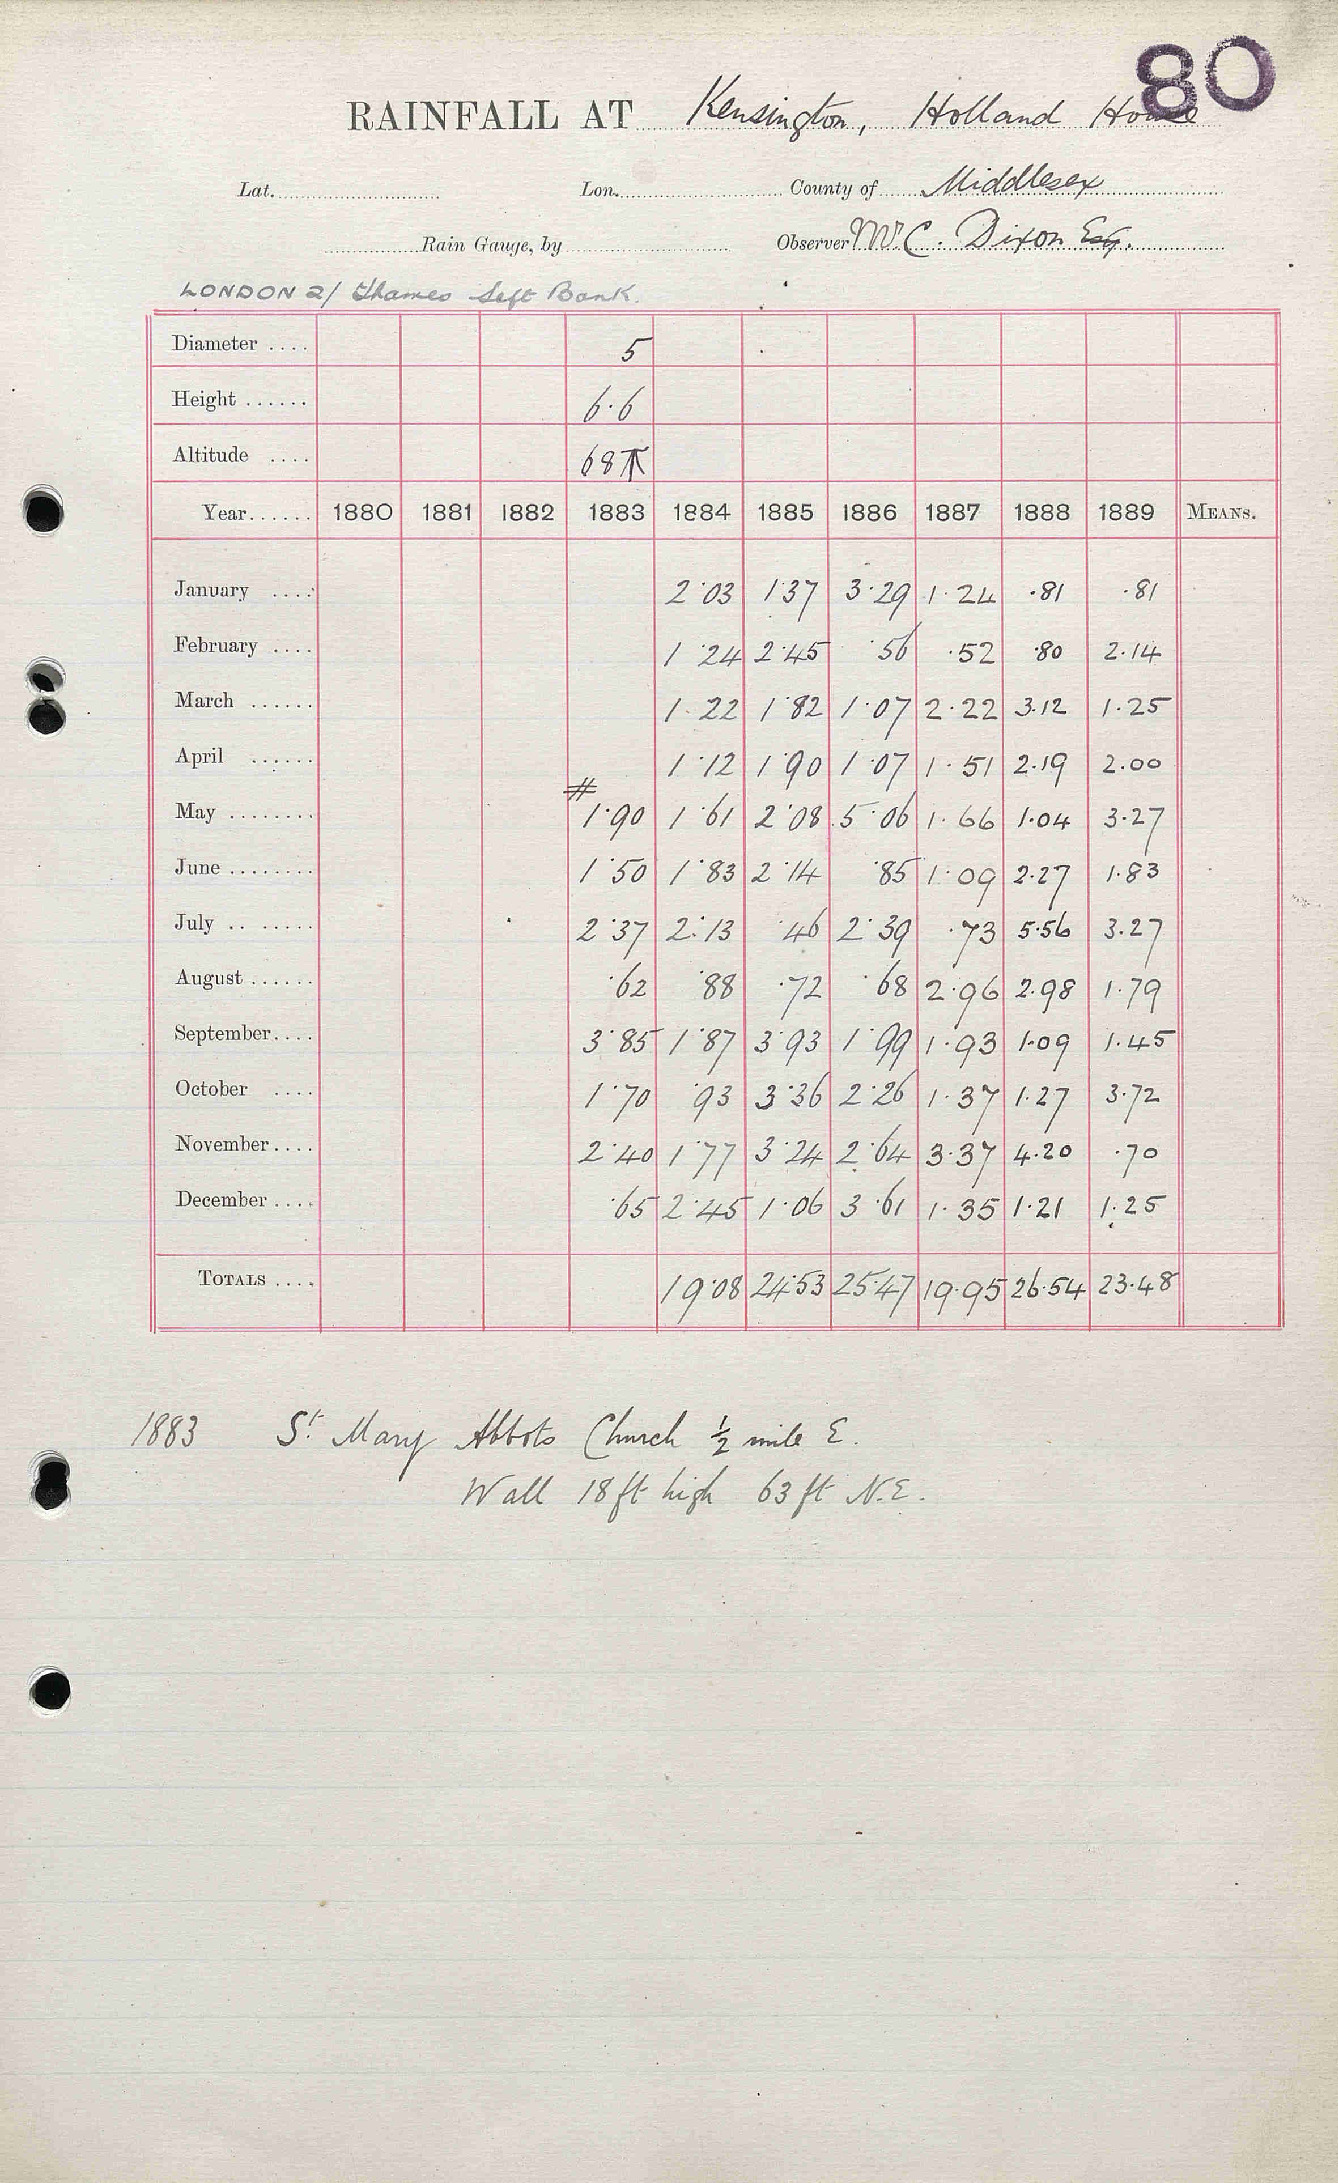 80
RAINFALL AT Kensington, Holland House
Lat. Lon. County of Middlesex
Rain Gauge, by Observer Mr C. Dixon Esq.
LONDON 2/ Thames Left Bank.
Diameter .... 5
Height ...... 6.6
Altitude .... 68
Year...... 1880 1881 1882 1883 1884 1885 1886 1887 1888 1889 MEANS.
January .... 2.03 1.37 3.29 1.24 .81 .81
February .... 1.24 2.45 .56 .52 .80 2.14
March ...... 1.22 1.82 1.07 2.22 3.12 1.25
April ...... 1.12 1.90 1.07 1.51 2.19 2.00
May ........ # 1.90 1.61 2.08 5.06 1.66 1.04 3.27
June ........ 1.50 1.83 2.14 .85 1.09 2.27 1.83
July .. ..... 2.37 2.13 .46 2.39 .73 5.56 3.27
August ...... .62 .88 .72 .68 2.96 2.98 1.79
September.... 3.85 1.87 3.93 1.99 1.93 1.09 1.45
October .... 1.70 .93 3.36 2.26 1.37 1.27 3.72
November.... 2.40 1.77 3.24 2.64 3.37 4.20 .70
December .... .65 2.45 1.06 3.61 1.35 1.21 1.25
TOTALS .... 19.08 24.53 25.47 19.95 26.54 23.48
1883 St. Mary Abbots Church ½ mile E.
Wall 18 ft high 63 ft N.E.